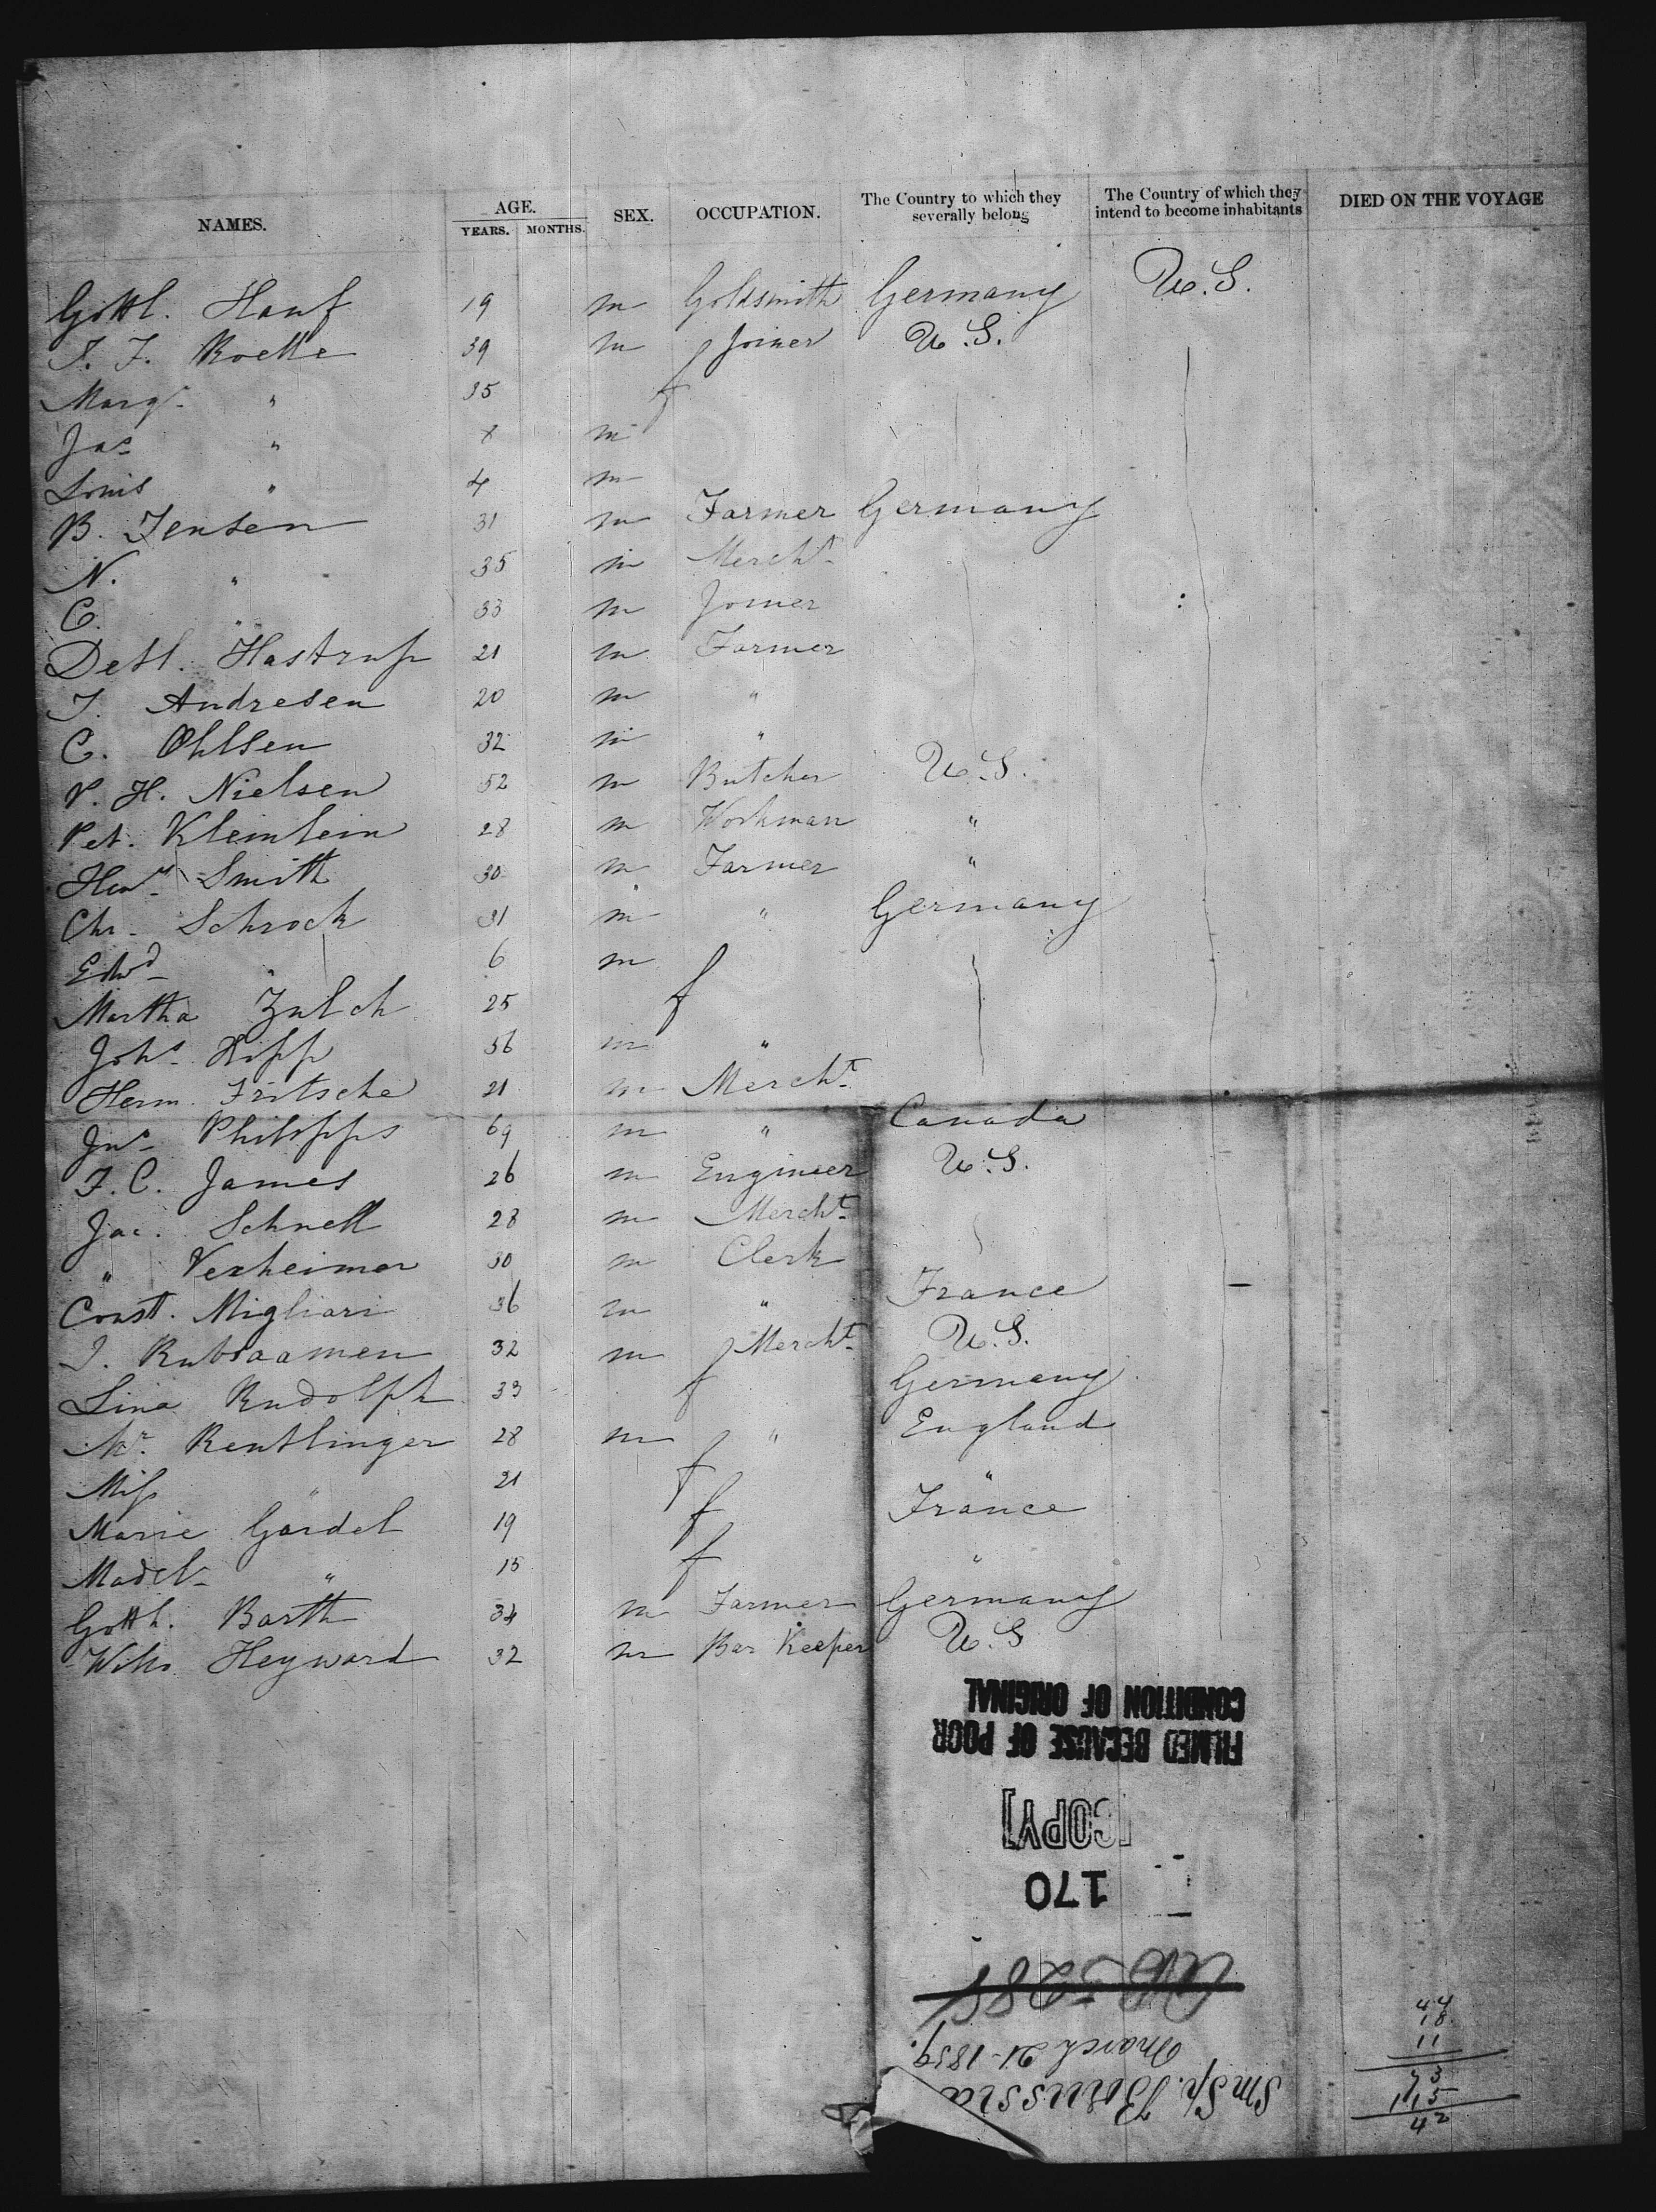 NAMES. AGE. YEARS. MONTHS. SEX. OCCUPATION. The Country to which they severally belong The Country of which they intend to become inhabitants DIED ON THE VOYAGE
Gottl. Hauf 19 m Goldsmith Germany U.S.
J. F. Roelle 39 m Joiner U.S.
Margt. " 35 f
Jas " 8 m
Louis " 4 m
B. Jensen 31 m Farmer Germany
N. " 35 m Mercht.
C. " 33 m Joiner
Detl. Hastrup 21 m Farmer
J. Andresen 20 m "
C. Ohlsen 32 m "
P. H. Nielsen 52 m Butcher U.S.
Pet. Kleinlein 28 m Workman "
Heny. Smith 30 m Farmer "
Chr. Schrock 31 m " Germany
Edwd " 6 m
Martha Zulch 25 f
Johs. Hipp 56 m "
Herm. Fritsche 21 m Mercht.
Jns. Philipps 69 m " Canada
F. C. James 26 m Engineer U.S.
Jac. Schnell 28 m Mercht.
" Verheimer 30 m Clerk
Const. Migliari 36 m " France
J. Rubsaamen 32 m Mercht. U.S.
Lina Rudolph 33 f Germany
Mr. Reutlinger 28 m " England
Miss " 21 f "
Marie Gardel 19 f France
Madel. " 15 f "
Gottl. Barth 34 m Farmer Germany
Wm. Heyward 32 m Bar Keeper U.S
FILMED BECAUSE OF POOR
CONDITION OF ORIGINAL
[COPY]
170
Sm Sp. Borussia
March 21-1859.
44
18
11
73
115
42